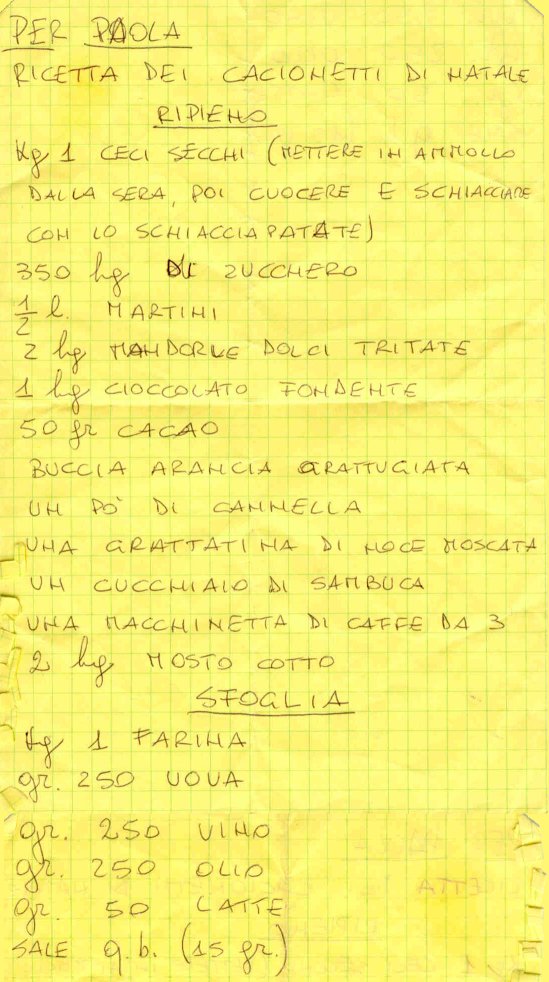 PER PAOLA
RICETTA DEI CACIONETTI DI NATALE
RIPIENO
Kg 1 CECI SECCHI (METTERE IN AMMOLLO
DALLA SERA, POI CUOCERE E SCHIACCIARE
CON LO SCHIACCIAPATATE)
350 hg DI ZUCCHERO
1/2 l. MARTINI
2 hg MANDORLE DOLCI TRITATE
1 hg CIOCCOLATO FONDENTE
50 gr CACAO
BUCCIA ARANCIA GRATTUGIATA
UN PO' DI CANNELLA
UNA GRATTATINA DI NOCE MOSCATA
UN CUCCHIAIO DI SAMBUCA
UNA MACCHINETTA DI CAFFE DA 3
2 hg MOSTO COTTO
SFOGLIA
Kg 1 FARINA
gr. 250 UOVA
gr. 250 VINO
gr. 250 OLIO
gr. 50 LATTE
SALE q.b. (15 gr.)